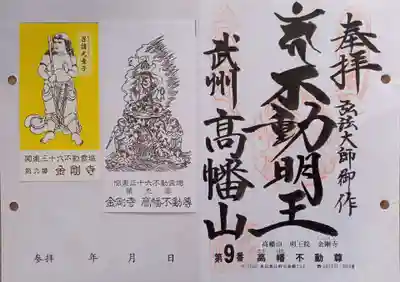 奉拝
弘法大師御作
不動明王
武州 高幡山
関東三十六不動霊場
第九番 金剛寺
関東三十六不動霊場
第九番
金剛寺 高幡不動尊
参拝 年 月 日
高幡山 明王院 金剛寺
第9番 高幡不動尊